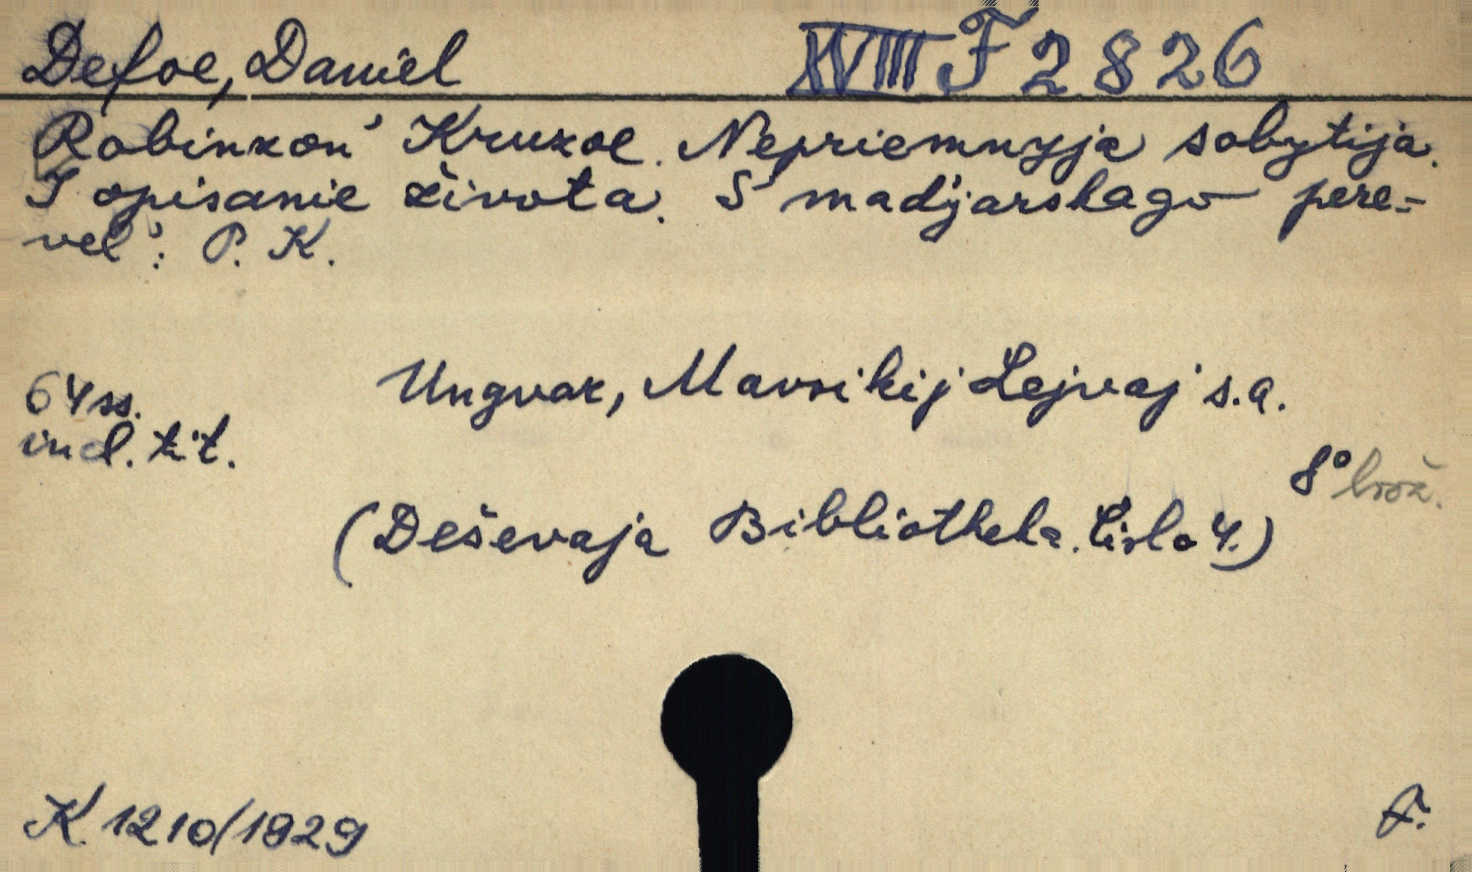 Defoe, Daniel XVIII F 2826
Robinzon' Kruzoe. Nepriemnyja sobytija.
I opisanie života. S' mad'jarskago pere-
vel': P. K.
Ungvar, Mavrikij Lejvaj s.a.
64 ss.
incl. tit.
8° brož.
(Deševaja Bibliotheka. Čislo 4.)
K. 1210/1929 F.